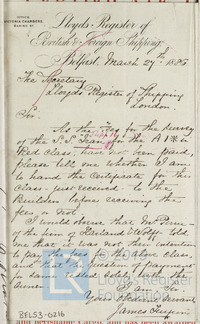 OFFICE
VICTORIA CHAMBERS,
Lloyd's Register of
British & Foreign Shipping.
Belfast, March 27th 1886
The Secretary
Lloyds Register of Shipping
London.
Sir,
As the Fees for the Survey
of the S.S. for the A1 in
this Class, has not been paid,
please tell me whether I am
to hand the Certificate for this
Class just received to the
Builders before receiving the
fees or not.
I would observe that Mr
of the firm of Harland & Wolff told
me that it was not their intention
to pay the fees for the above class,
and that the question of payment
the same rested solely with the
Owners.
I am Sir
Your Obedient Servant
James Turpin
BEL53-0216